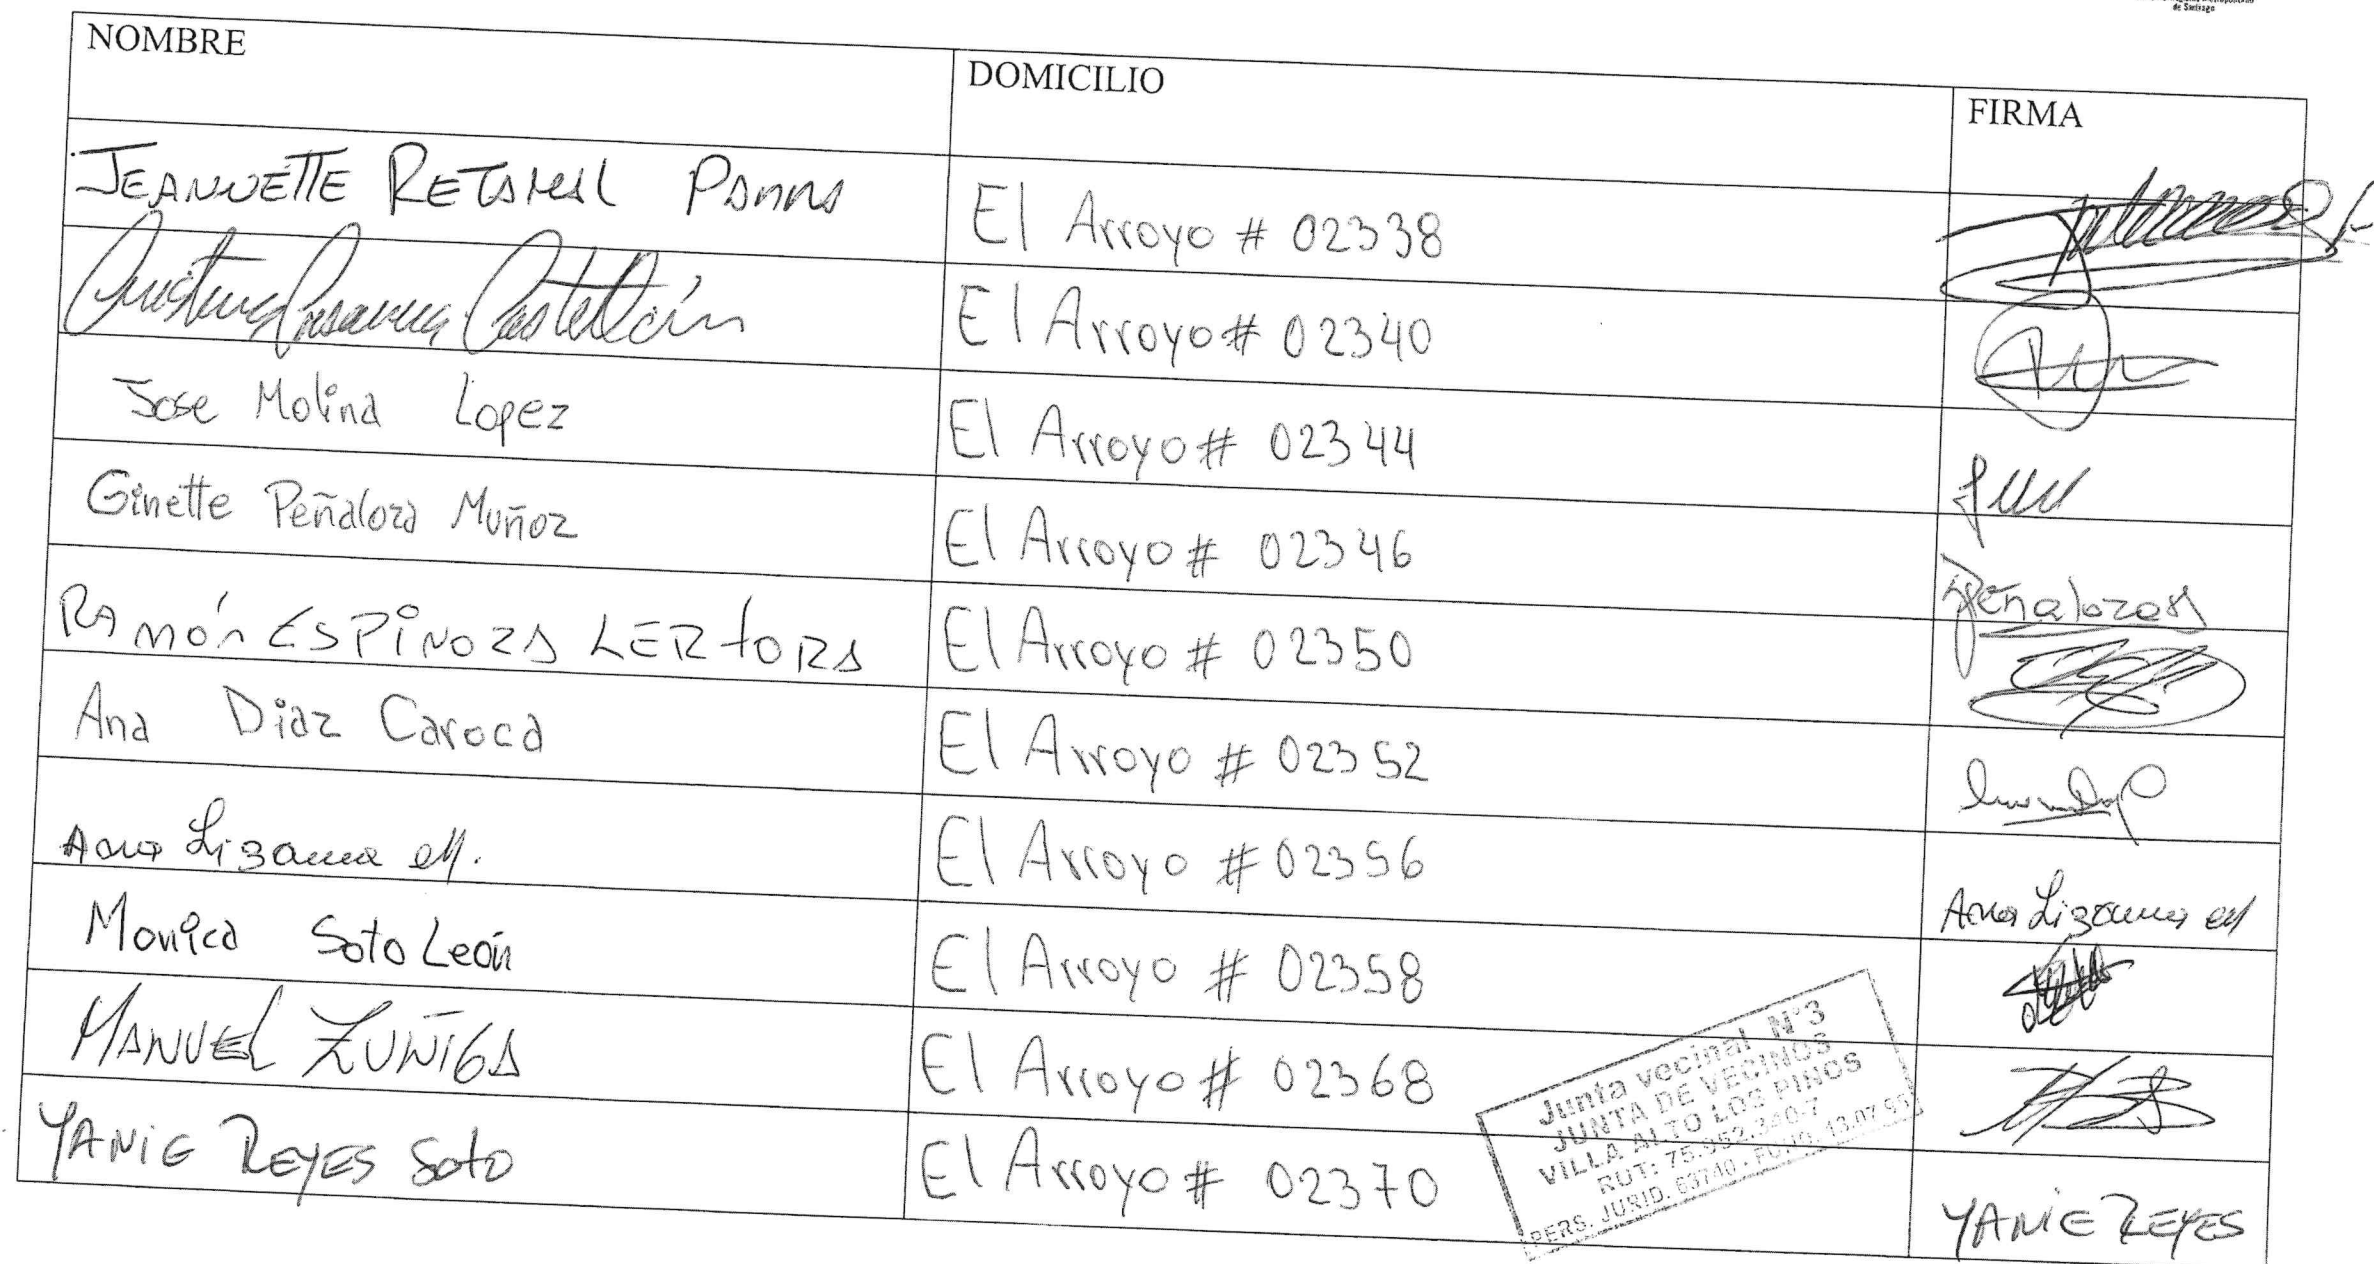 de Santiago
NOMBRE DOMICILIO FIRMA
JEANNETTE RETAMAL PARRA El Arroyo # 02338
Cristina Casanueva Castellón El Arroyo # 02340
Jose Molina Lopez El Arroyo # 02344
Ginette Peñaloza Muñoz El Arroyo # 02346 Peñaloza
RAmón ESPINOZA LERtORA El Arroyo # 02350
Ana Diaz Caroca El Arroyo # 02352
Ana Lizama M. El Arroyo # 02356 Ana Lizama M
Monica Soto León El Arroyo # 02358
MANUEL ZUÑIGA El Arroyo # 02368
YANIE REYES Soto El Arroyo # 02370 YANIE REYES
Junta vecinal N°3
JUNTA DE VECINOS
VILLA ALTO LOS PINOS
RUT: 75.952.340-7
PERS. JURID. 637/40